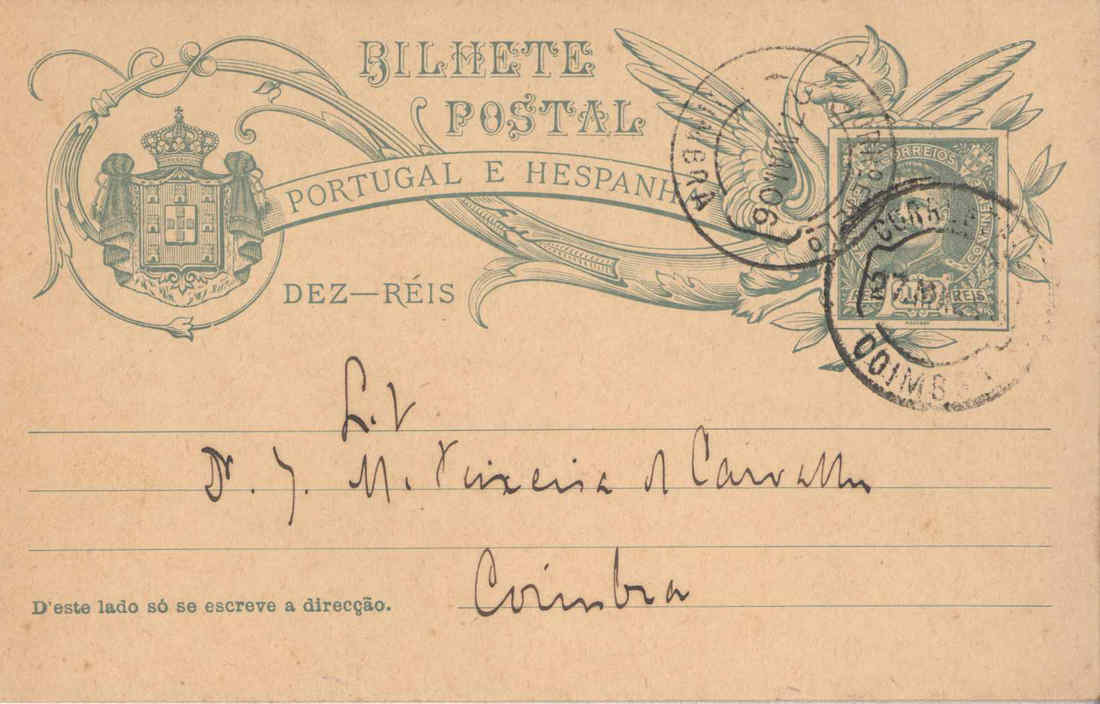 BILHETE
POSTAL
PORTUGAL E HESPANH
DEZ—RÉIS
CORREIOS
REIS
27 MAI 06
COIMBRA
L. V
Dr. J. M. Teixeira de Carvalho
Coimbra
D'este lado só se escreve a direcção.